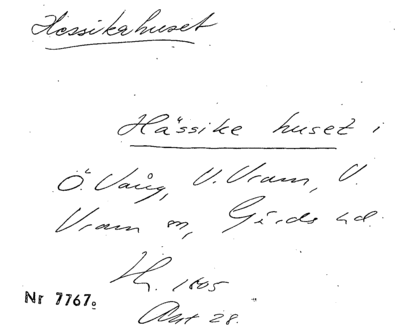 Hessikahuset
Hässike huset i
Ö. Vång, V. Vram, V.
Vram sn, Gärds hd.
Hh. 1805
Nr 7767.
Akt 28.